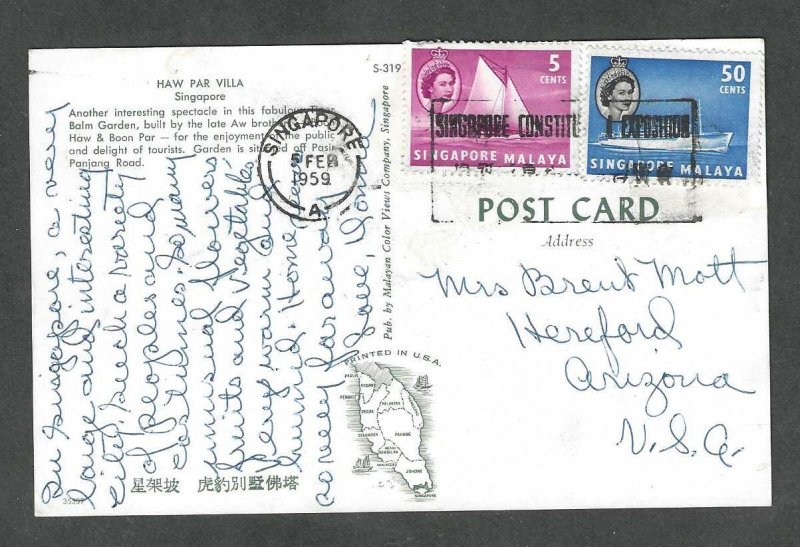 HAW PAR VILLA
Singapore
Another interesting spectacle in this fabulous Tiger
Balm Garden, built by the late Aw brothers
Haw & Boon Par — for the enjoyment of the public
and delight of tourists. Garden is situated off Pasir
Panjang Road.
S-319
Pub. by Malayan Color Views Company, Singapore
SINGAPORE
5 FEB
1959
A
5
CENTS
SINGAPORE MALAYA
50
CENTS
SINGAPORE MALAYA
SINGAPORE CONSTITU EXPOSITION
POST CARD
Address
Mrs Brent Mott
Hereford
Arizona
U.S.A.
In Singapore, a very
large and interesting
city. Such a variety
of peoples and
costumes. So many
unusual flowers
fruits and vegetables.
Very warm and
humid. Home
so very far away
Love,
PRINTED IN U.S.A.
PERLIS
KEDAH
PENANG
PERAK
KELANTAN
SELANGOR
PAHANG
NEGRI
SEMBILAN
MALACCA
JOHORE
SINGAPORE
星架坡 虎豹別墅佛塔
35337